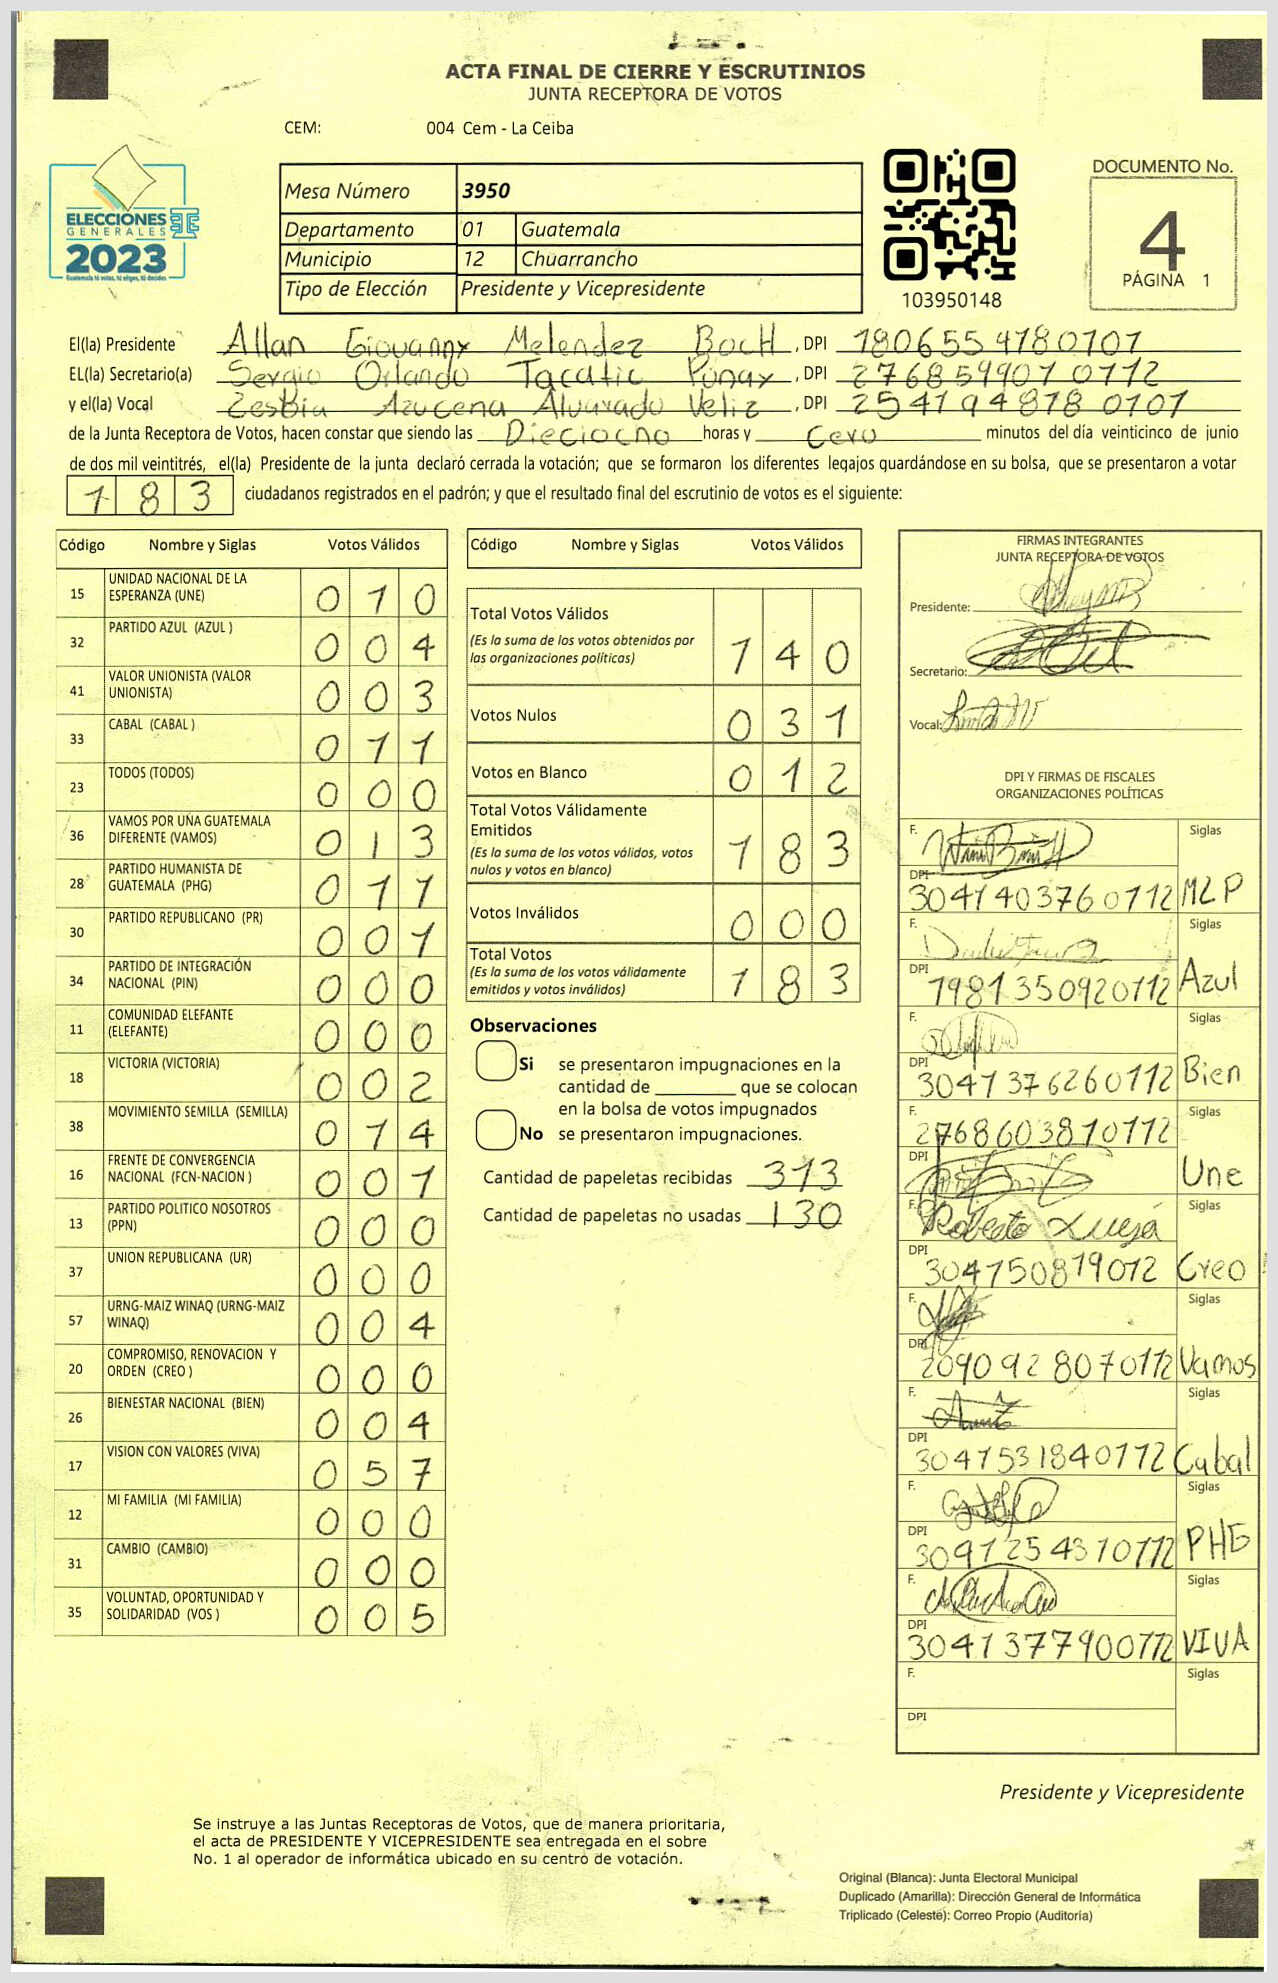 ACTA FINAL DE CIERRE Y ESCRUTINIOS
JUNTA RECEPTORA DE VOTOS
CEM: 004 Cem - La Ceiba
ELECCIONES
GENERALES
2023
Guatemala tú votas, tú eliges, tú decides
Mesa Número 3950
Departamento 01 Guatemala
Municipio 12 Chuarrancho
Tipo de Elección Presidente y Vicepresidente
103950148
DOCUMENTO No.
4
PÁGINA 1
El(la) Presidente Allan Giovanny Melendez Boch, DPI 1806554780101
EL(la) Secretario(a) Sergio Orlando Tacatic Punax, DPI 2768599010112
y el(la) Vocal Lesbia Azucena Alvarado Veliz, DPI 2541948780101
de la Junta Receptora de Votos, hacen constar que siendo las Dieciocho horas y Cero minutos del día veinticinco de junio
de dos mil veintitrés, el(la) Presidente de la junta declaró cerrada la votación; que se formaron los diferentes legajos quardándose en su bolsa, que se presentaron a votar
183 ciudadanos registrados en el padrón; y que el resultado final del escrutinio de votos es el siguiente:
Código Nombre y Siglas Votos Válidos
15 UNIDAD NACIONAL DE LA ESPERANZA (UNE) 010
32 PARTIDO AZUL (AZUL ) 004
41 VALOR UNIONISTA (VALOR UNIONISTA) 003
33 CABAL (CABAL ) 011
23 TODOS (TODOS) 000
36 VAMOS POR UNA GUATEMALA DIFERENTE (VAMOS) 013
28 PARTIDO HUMANISTA DE GUATEMALA (PHG) 011
30 PARTIDO REPUBLICANO (PR) 001
34 PARTIDO DE INTEGRACIÓN NACIONAL (PIN) 000
11 COMUNIDAD ELEFANTE (ELEFANTE) 000
18 VICTORIA (VICTORIA) 002
38 MOVIMIENTO SEMILLA (SEMILLA) 014
16 FRENTE DE CONVERGENCIA NACIONAL (FCN-NACION ) 001
13 PARTIDO POLITICO NOSOTROS (PPN) 000
37 UNION REPUBLICANA (UR) 000
57 URNG-MAIZ WINAQ (URNG-MAIZ WINAQ) 004
20 COMPROMISO, RENOVACION Y ORDEN (CREO ) 000
26 BIENESTAR NACIONAL (BIEN) 004
17 VISION CON VALORES (VIVA) 057
12 MI FAMILIA (MI FAMILIA) 000
31 CAMBIO (CAMBIO) 000
35 VOLUNTAD, OPORTUNIDAD Y SOLIDARIDAD (VOS ) 005
Código Nombre y Siglas Votos Válidos
Total Votos Válidos 140
(Es la suma de los votos obtenidos por
las organizaciones políticas)
Votos Nulos 031
Votos en Blanco 012
Total Votos Válidamente
Emitidos 183
(Es la suma de los votos válidos, votos
nulos y votos en blanco)
Votos Inválidos 000
Total Votos 183
(Es la suma de los votos válidamente
emitidos y votos inválidos)
Observaciones
Si se presentaron impugnaciones en la
cantidad de ________ que se colocan
en la bolsa de votos impugnados
No se presentaron impugnaciones.
Cantidad de papeletas recibidas 313
Cantidad de papeletas no usadas 130
FIRMAS INTEGRANTES
JUNTA RECEPTORA DE VOTOS
Presidente:
Secretario:
Vocal:
DPI Y FIRMAS DE FISCALES
ORGANIZACIONES POLÍTICAS
F. Siglas
DPI 3041403760112 MLP
F. Siglas
DPI 1981350920112 Azul
F. Siglas
DPI 3041376260112 Bien
F. 2768603810112 Siglas
DPI Une
F. Roberto Siglas
DPI 304150819012 Creo
F. Siglas
DPI 2090928070112 Vamos
F. Siglas
DPI 3041531840112 Cabal
F. Siglas
DPI 3091254310112 PHG
F. Siglas
DPI 3041377900112 VIVA
F. Siglas
DPI
Presidente y Vicepresidente
Se instruye a las Juntas Receptoras de Votos, que de manera prioritaria,
el acta de PRESIDENTE Y VICEPRESIDENTE sea entregada en el sobre
No. 1 al operador de informática ubicado en su centro de votación.
Original (Blanca): Junta Electoral Municipal
Duplicado (Amarilla): Dirección General de Informática
Triplicado (Celeste): Correo Propio (Auditoría)